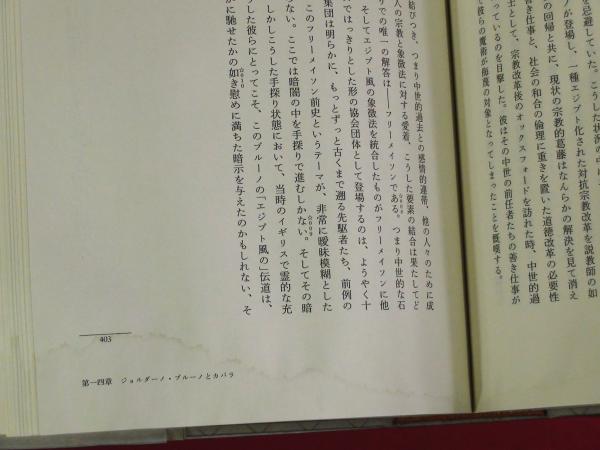 を忌避していた。こうした状況の中に
ノが登場し、一種エジプト化された対抗宗教改革を説教師の如
の回帰と共に、現状の宗教的葛藤はなんらかの解決を見て消え
き仕事と、社会の和合の倫理に重きを置いた道徳改革の必要性
士として、宗教改革後のオックスフォードを訪れた時、中世的過
っているのを目撃した。彼はその中世の前任者たちの善き仕事が
て彼らの魔術が侮蔑の対象となってしまったことを慨嘆する。
結びつき、つまり中世的過去との感情的連帯、他の人々のために成
人の宗教と象徴法に対する愛着、こうした要素の結合は果たしてど
りでの唯一の解答は——フリーメイソンである。つまり中世的な石
そしてエジプト風の象徴法を統合したものがフリーメイソンに他
ではっきりとした形の協会団体として登場するのは、ようやく十
集団は明らかに、もっとずっと古くまで遡る先駆者たち、前例の
このフリーメイソン前史というテーマが、非常に曖昧模糊とした
ない。ここでは暗闇の中を手探りで進むしかない。そしてその暗
しかしこうした手探り状態において、当時のイギリスで霊的な充
した彼らにとってこそ、このブルーノの「エジプト風の」伝道は、
かに馳せたかの如き慰めに満ちた暗示を与えたのかもしれない、そ
403
第一四章 ジョルダーノ・ブルーノとカバラ